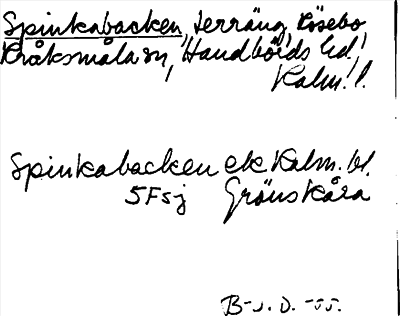 Spinkabacken, terräng, Rösebo
Kråksmåla sn, Handbörds hd.
Kalm. l.
Spinkabacken ek Kalm. bl.
5F5j Grönskåra
B-J. D. -55.